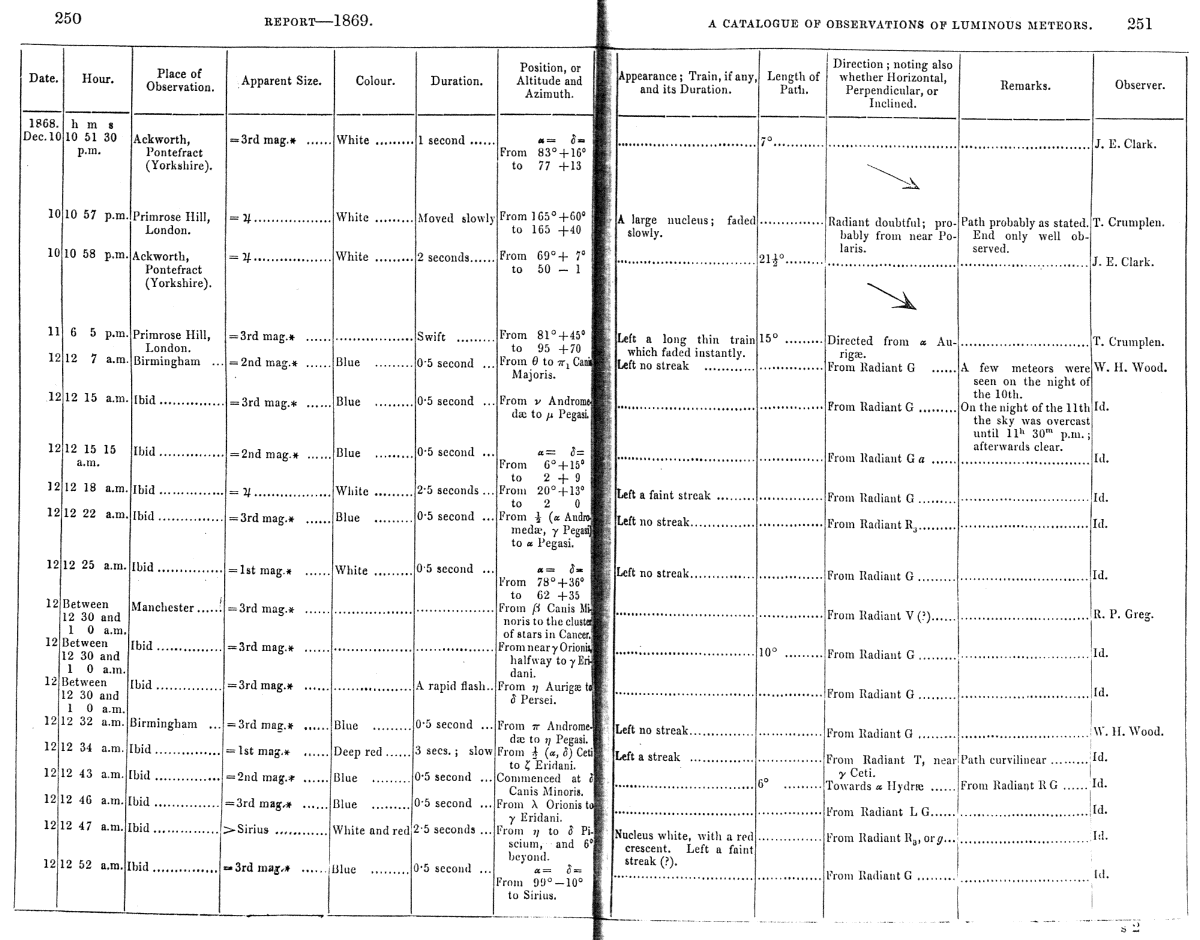 250 REPORT—1869.
Date. Hour. Place of Observation. Apparent Size. Colour. Duration. Position, or Altitude and Azimuth.
1868. h m s
Dec.10 10 51 30 p.m. Ackworth, Pontefract (Yorkshire). =3rd mag.* White 1 second α= δ= From 83°+16° to 77 +13
10 10 57 p.m. Primrose Hill, London. =♃ White Moved slowly From 165°+60° to 165 +40
10 10 58 p.m. Ackworth, Pontefract (Yorkshire). =♃ White 2 seconds From 69°+ 7° to 50 − 1
11 6 5 p.m. Primrose Hill, London. =3rd mag.* Swift From 81°+45° to 95 +70
12 12 7 a.m. Birmingham =2nd mag.* Blue 0·5 second From θ to π₁ Canis Majoris.
12 12 15 a.m. Ibid =3rd mag.* Blue 0·5 second From ν Andromedæ to μ Pegasi.
12 12 15 15 a.m. Ibid =2nd mag.* Blue 0·5 second α= δ= From 6°+15° to 2 + 9
12 12 18 a.m. Ibid =♃ White 2·5 seconds From 20°+13° to 2 0
12 12 22 a.m. Ibid =3rd mag.* Blue 0·5 second From ½ (α Andromedæ, γ Pegasi) to α Pegasi.
12 12 25 a.m. Ibid =1st mag.* White 0·5 second α= δ= From 78°+36° to 62 +35
12 Between 12 30 and 1 0 a.m. Manchester =3rd mag.* From β Canis Minoris to the cluster of stars in Cancer.
12 Between 12 30 and 1 0 a.m. Ibid =3rd mag.* From near γ Orionis, halfway to γ Eridani.
12 Between 12 30 and 1 0 a.m. Ibid =3rd mag.* A rapid flash From η Aurigæ to δ Persei.
12 12 32 a.m. Birmingham =3rd mag.* Blue 0·5 second From π Andromedæ to η Pegasi.
12 12 34 a.m. Ibid =1st mag.* Deep red 3 secs.; slow From ½ (α, δ) Ceti to ζ Eridani.
12 12 43 a.m. Ibid =2nd mag.* Blue 0·5 second Commenced at δ Canis Minoris.
12 12 46 a.m. Ibid =3rd mag.* Blue 0·5 second From λ Orionis to γ Eridani.
12 12 47 a.m. Ibid >Sirius White and red 2·5 seconds From η to δ Piscium, and 6° beyond.
12 12 52 a.m. Ibid =3rd mag.* Blue 0·5 second α= δ= From 99°−10° to Sirius.
A CATALOGUE OF OBSERVATIONS OF LUMINOUS METEORS. 251
Appearance; Train, if any, and its Duration. Length of Path. Direction; noting also whether Horizontal, Perpendicular, or Inclined. Remarks. Observer.
7° J. E. Clark.
A large nucleus; faded slowly. Radiant doubtful; probably from near Polaris. Path probably as stated. End only well observed. T. Crumplen.
21½° J. E. Clark.
Left a long thin train which faded instantly. 15° Directed from α Aurigæ. T. Crumplen.
Left no streak From Radiant G A few meteors were seen on the night of the 10th. W. H. Wood.
From Radiant G On the night of the 11th the sky was overcast until 11h 30m p.m.; afterwards clear. Id.
From Radiant G a Id.
Left a faint streak From Radiant G Id.
Left no streak From Radiant R₃ Id.
Left no streak From Radiant G Id.
From Radiant V (?) R. P. Greg.
10° From Radiant G Id.
From Radiant G Id.
Left no streak From Radiant G W. H. Wood.
Left a streak From Radiant T, near γ Ceti. Path curvilinear Id.
6° Towards α Hydræ From Radiant R G Id.
From Radiant L G Id.
Nucleus white, with a red crescent. Left a faint streak (?). From Radiant R₃, or g Id.
From Radiant G Id.
s 2